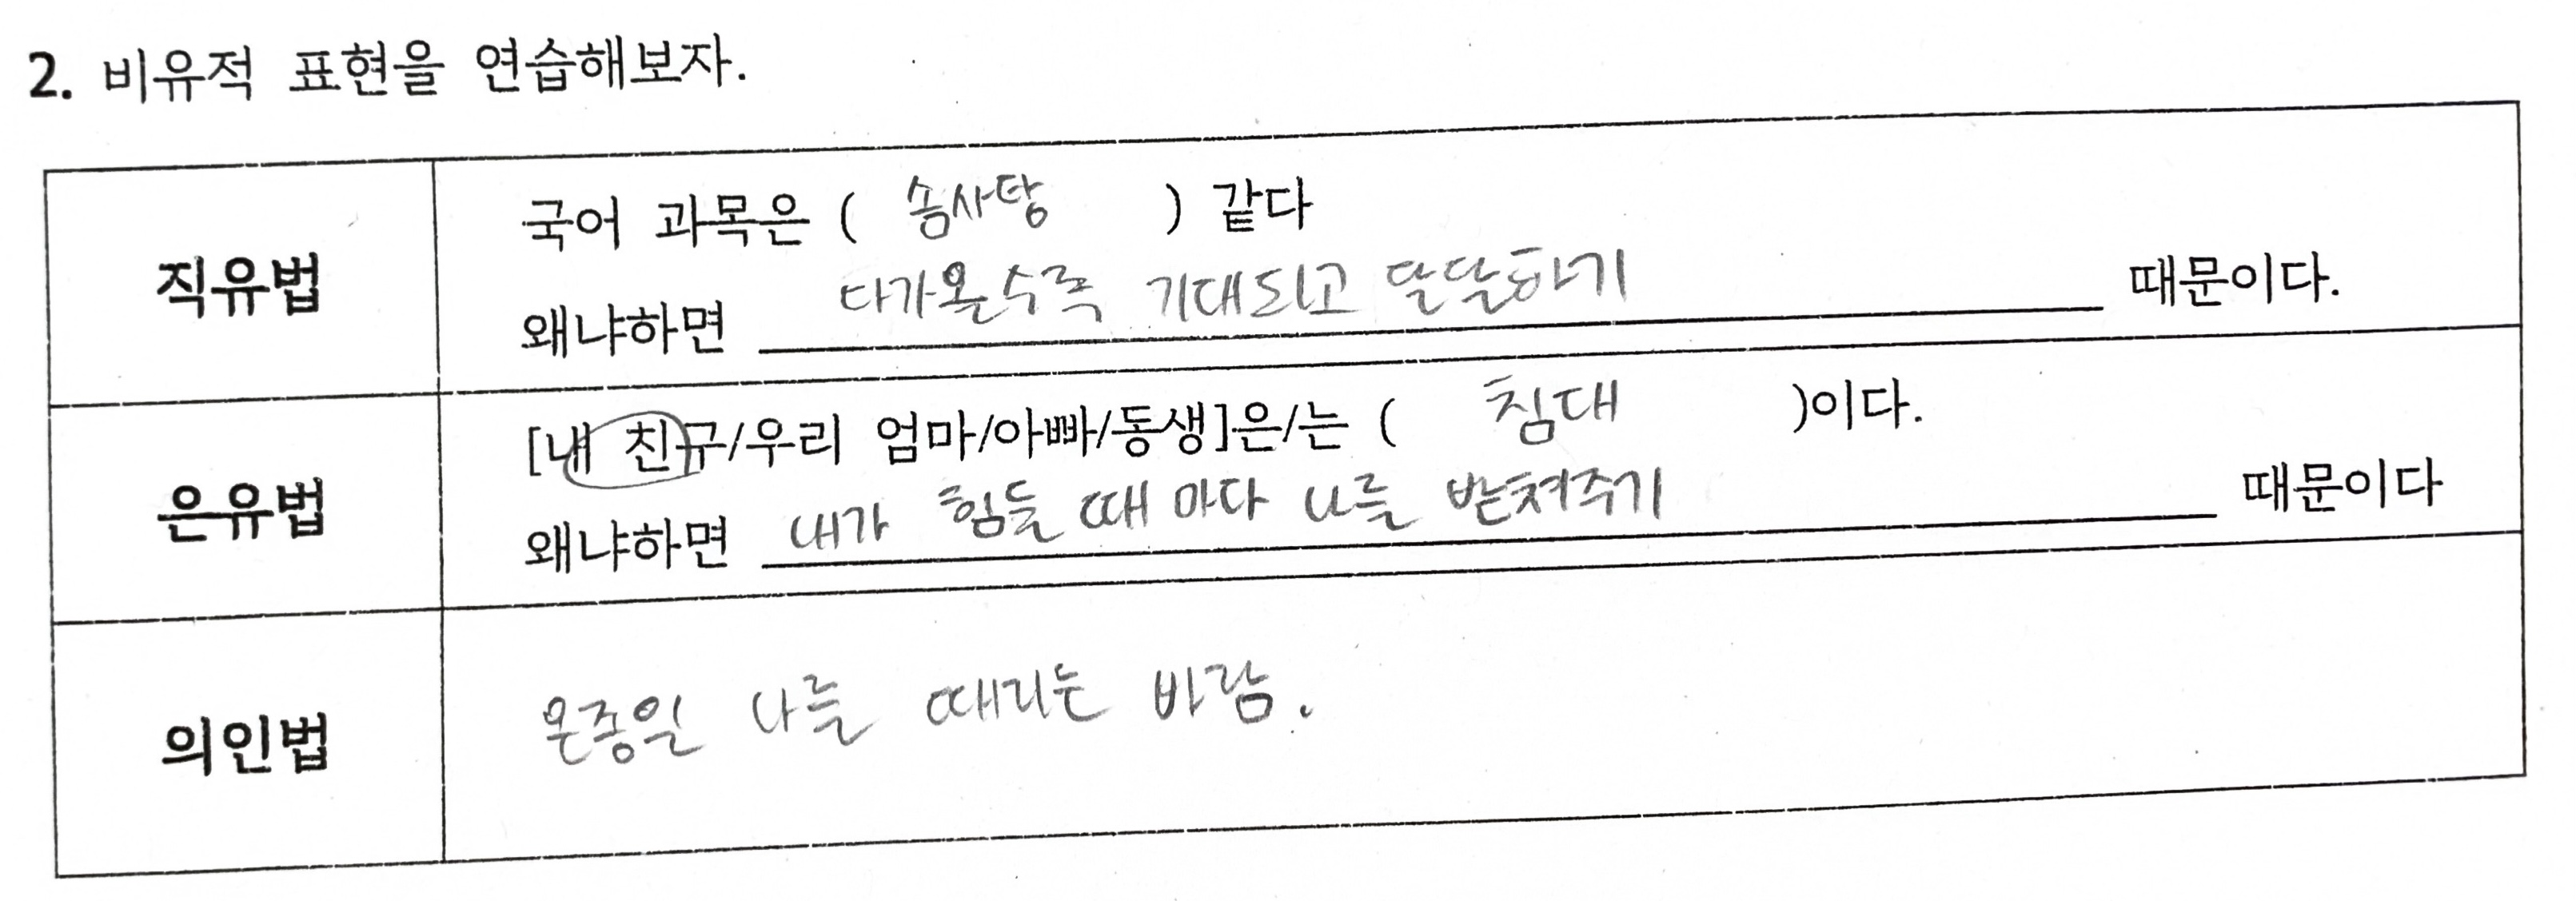 2. 비유적 표현을 연습해보자.
직유법
국어 과목은 ( 솜사탕 ) 같다
왜냐하면 다가올수록 기대되고 달달하기 때문이다.
은유법
[내 친구/우리 엄마/아빠/동생]은/는 ( 침대 )이다.
왜냐하면 내가 힘들 때 마다 나를 받쳐주기 때문이다
의인법
온종일 나를 때리는 바람.